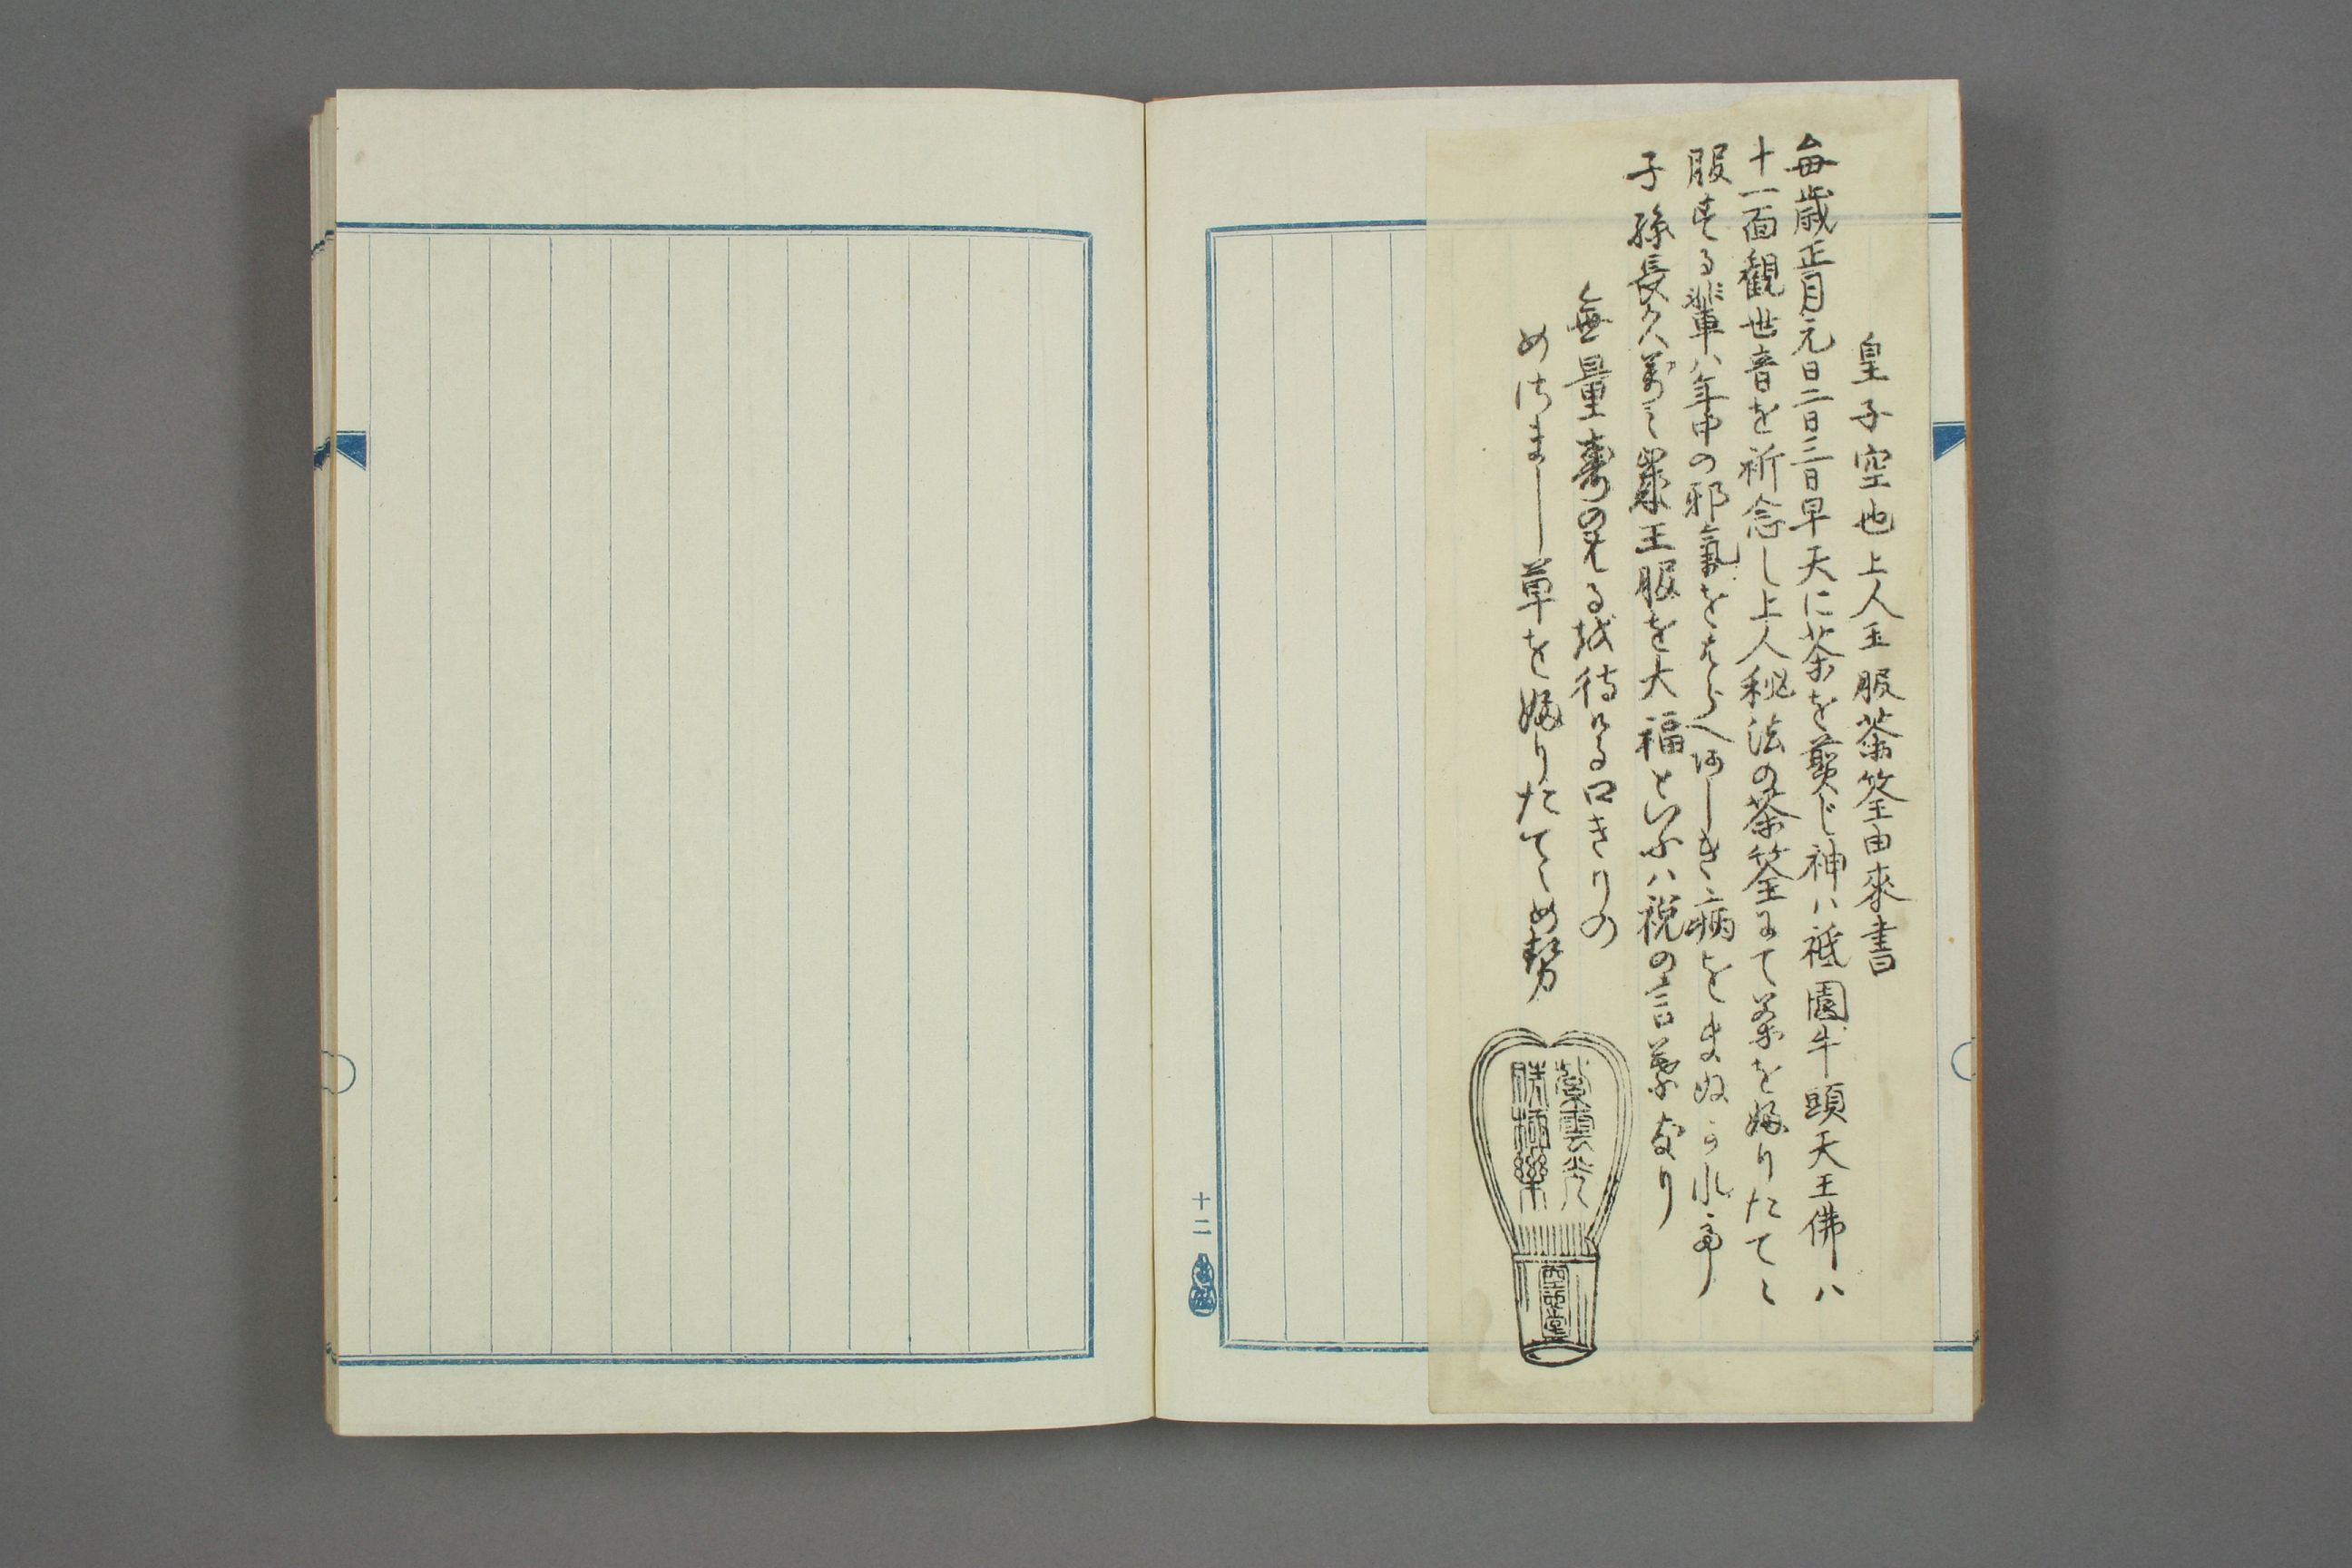 皇子空也上人王服茶筌由來書
毎歳正月元日二日三日早天に茶を煎じ神ハ祗園牛頭天王佛ハ
十一面觀世音を祈念し上人秘法の茶筌にて茶を婦りたてゝ
服する輩ハ年中の邪氣をはらへ阿しき病をまぬかれ
子孫長久萬之 王服を大福といふハ祝の言葉なり
無量壽の 越待 口きりの
めはまし草を婦りたてゝめ勢
紫雲
極樂
空也堂
十二